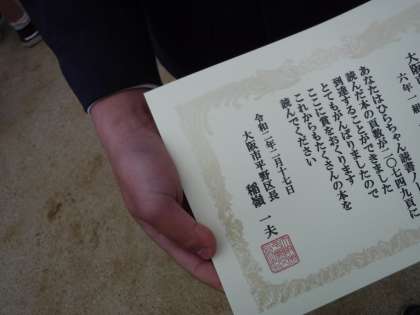 大阪
六年一
あなたはひらちゃん読書ノ
読んだ本の頁数が二〇七四九頁に
到達することができましたので
とてもがんばりました
ここに賞をおくります
これからもたくさんの本を
読んでください
令和二年二月十七日
大阪市平野区長
稲嶺一夫